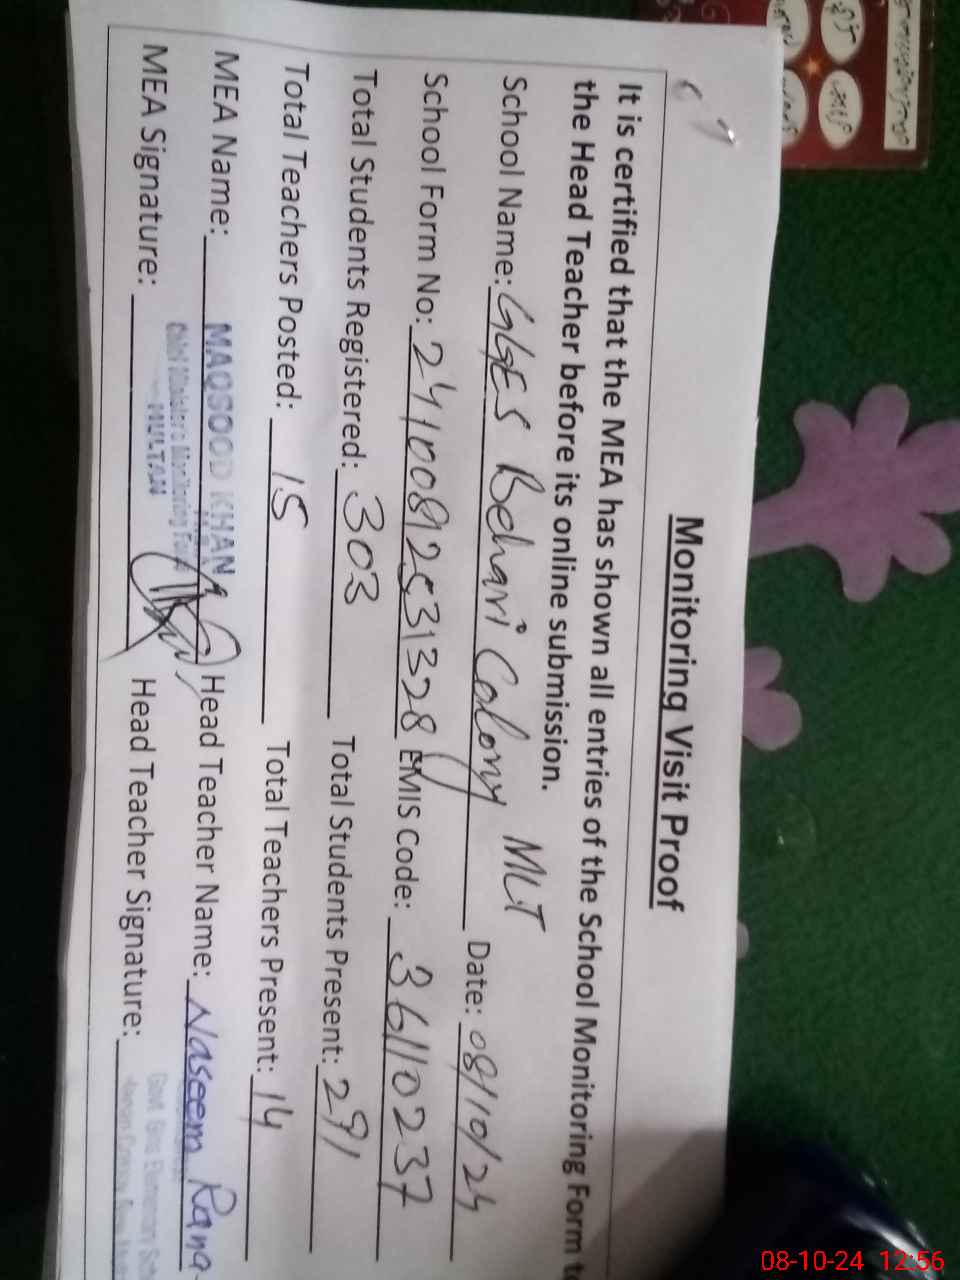 Monitoring Visit Proof
It is certified that the MEA has shown all entries of the School Monitoring Form to
the Head Teacher before its online submission.
School Name: GGES Behari Colony MLT Date: 08/10/24
School Form No: 24100892531328 EMIS Code: 36110237
Total Students Registered: 303 Total Students Present: 291
Total Teachers Posted: 15 Total Teachers Present: 14
MEA Name: MAQSOOD KHAN Head Teacher Name: Naseem Rana
Chief Minister's Monitoring Force
MULTAN
MEA Signature: Head Teacher Signature:
Govt. Girls Elementary
08-10-24 12:56